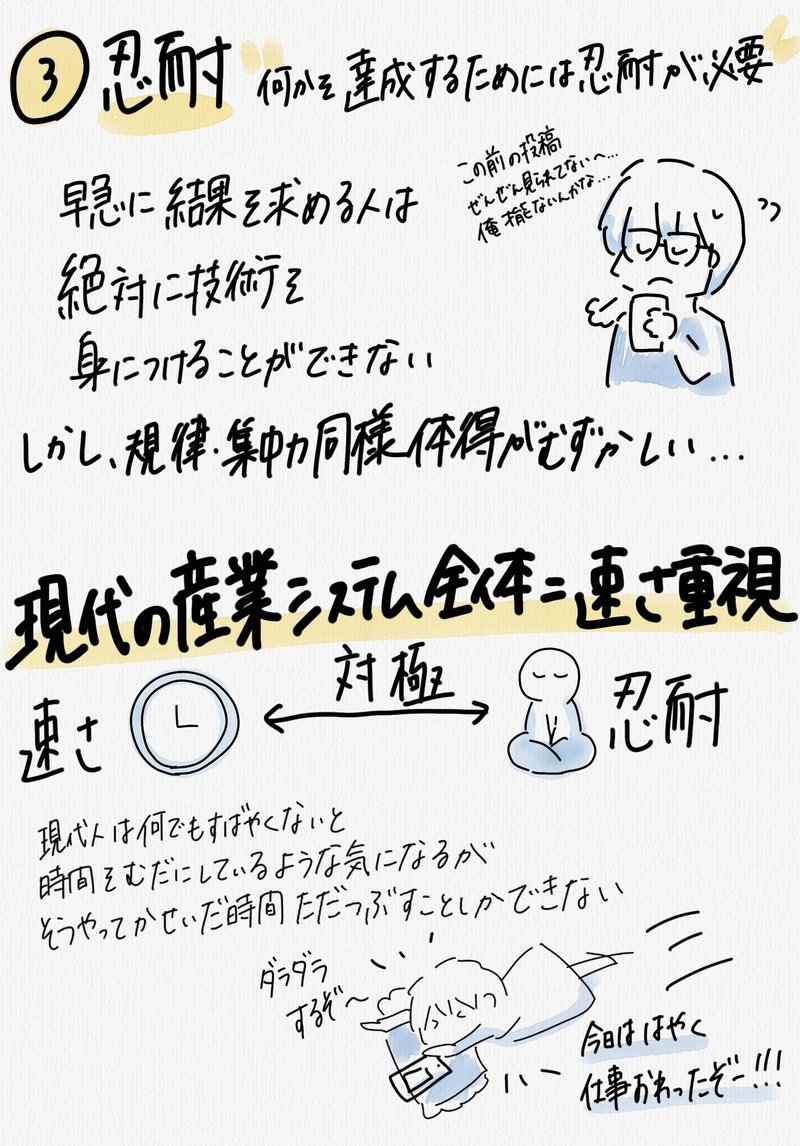 ③ 忍耐 何かを達成するためには忍耐が必要
この前の投稿
ぜんぜん見られてないへ…
俺才能ないんかな…
早急に結果を求める人は
絶対に技術を
身につけることができない
しかし、規律・集中力同様体得がむずかしい…
現代の産業システム全体=速さ重視
速さ 対極 忍耐
現代人は何でもすばやくないと
時間をむだにしているような気になるが
そうやってかせいだ時間ただつぶすことしかできない
ダラダラ
するぞ〜
今日ははやく
仕事おわったぞー!!!